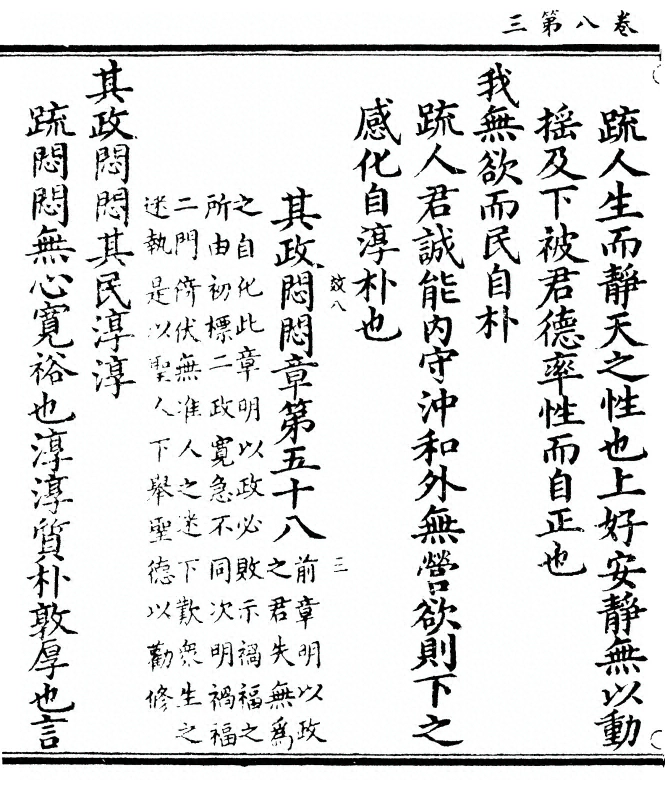 卷八第三
疏人生而靜天之性也上好安靜無以動
揺及下被君德率性而自正也
我無欲而民自朴
疏人君誠能内守沖和外無營欲則下之
感化自淳朴也
效八
三
其政悶悶章第五十八
前章明以政
之君失無爲
之自化此章明以政必敗示禍福之
所由初標二政寛急不同次明禍福
二門倚伏無准人之迷下歎衆生之
迷執是以聖人下舉聖德以勸修
其政悶悶其民淳淳
疏悶悶無心寛裕也淳淳質朴敦厚也言